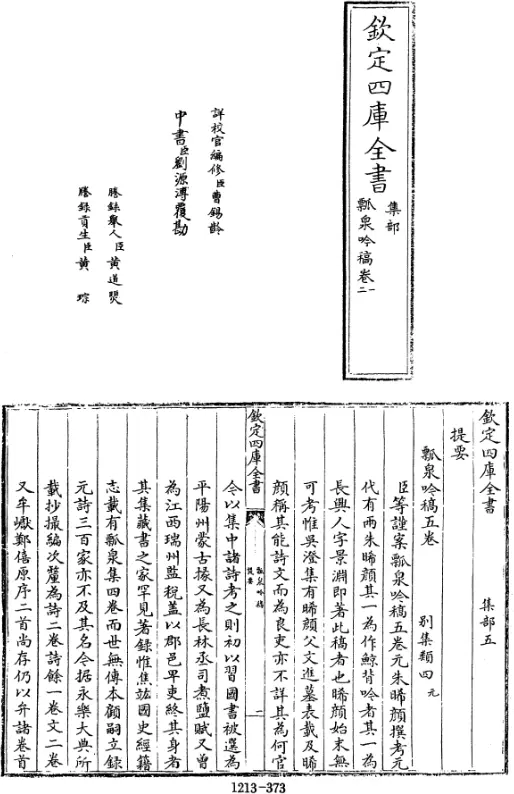 欽定四庫全書
集部
瓢泉吟稿卷一
二
詳校官編修臣曹錫齡
中書臣劉源溥覆勘
謄錄舉人臣黄道煚
謄錄貢生臣黄琮
欽定四庫全書
集部五
提要
瓢泉吟稿五卷
别集類四元
臣等謹案瓢泉吟稿五卷元朱晞顔撰考元
代有兩朱晞顔其一為作鯨背吟者其一為
長興人字景淵即著此稿者也晞顔始末無
可考惟吳澄集有晞顔父文進墓表載及晞
顔稱其能詩文而為良吏亦不詳其為何官
欽定四庫全書
瓢泉吟稿
提要
一
今以集中諸詩考之則初以習國書被選為
平陽州蒙古掾又為長林丞司煮鹽賦又曾
為江西瑞州監稅蓋以郡邑卑吏終其身者
其集藏書之家罕見著錄惟焦竑國史經籍
志載有瓢泉集四卷而世無傳本顧嗣立錄
元詩三百家亦不及其名今据永樂大典所
載抄撮編次釐為詩二卷詩餘一卷文二卷
又牟巘鄭僖原序二首尚存仍以弁諸卷首
1213-373